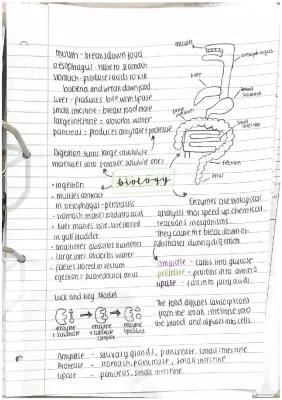 mouth - breaks down food
oesophagus - tube to stomach
stomach - produces acids to kill
bacteria and break down food.
liver - produces bile with lipase
small intestine - breaks food more
large intestine - absorbs water
pancreas - produces amylase + protease
mouth
oesophagus
liver
stomach
small intestine
rectum
anus
Digestion turns large insoluble
molecules into smaller soluble ones
biology
• ingestion
• muscles contract
in oesophagus - peristalsis
• stomach makes food in acid
• liver makes bile, bile stored
in gall bladder
• small inter absorbs nutrients
• large inter absorbs water
• faeces stored in rectum
egestion =
Enzymes are biological
catalysts that speed up chemical
reactions in organisms.
They cause the break down of
substrates during digestion.
amylase - carbs into glucose
protease - proteins into amino a
lipase - fats into fatty acids
lock and key Model
enzyme
+ substrate
enzyme
substrate
complex
enzyme
+ products
The food diffuses
from the small intestine into
the blood and diffuses into cells.
Amylase - salivary glands, pancreas, small intestine
Protease - stomach, pancreas, small intestine
lipase - pancreas, small intestine